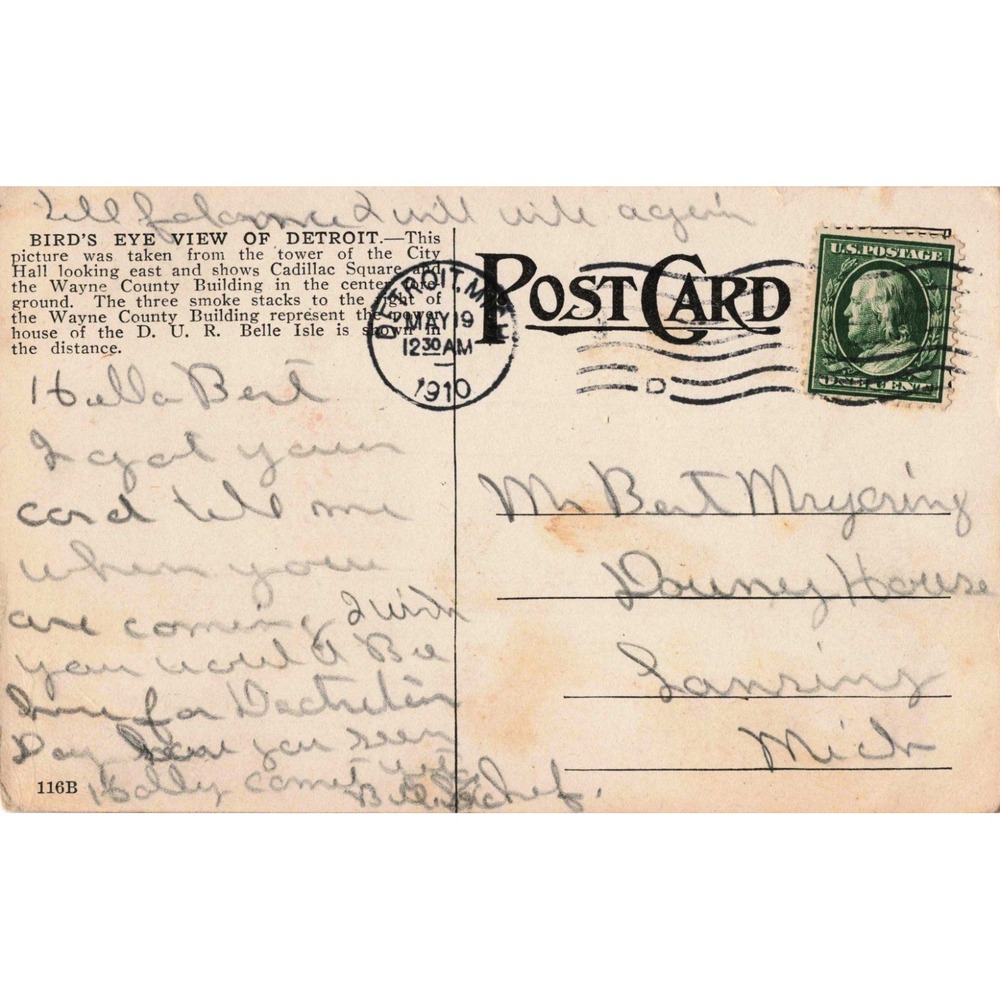 tell I will write again
BIRD'S EYE VIEW OF DETROIT.—This
picture was taken from the tower of the City
Hall looking east and shows Cadillac Square and
the Wayne County Building in the center fore-
ground. The three smoke stacks to the right of
the Wayne County Building represent the power
house of the D. U. R. Belle Isle is shown in
the distance.
POST CARD
DETROIT, MICH.
MAY 19
12 30 AM
1910
D
U.S. POSTAGE
ONE CENT
Hello Bert
I got your
card tell me
when you
are coming I wish
you would Be
here for
Day have you seen
Hally comet yet
Mr Bert
Downey House
Lansing
Mich
116B